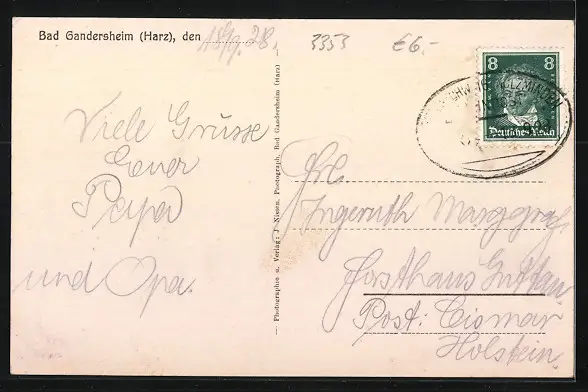 Bad Gandersheim (Harz), den 18/9.28.
3353
€6.-
8 8
Deutsches Reich
Viele Grüsse
Euer
Papa
und Opa.
Photographie u. Verlag: J. Nissen, Photograph, Bad Gandersheim (Harz)
Frl.
Ingeruth Marggraf
Forsthaus Guttau
Post: Cismar
Holstein.